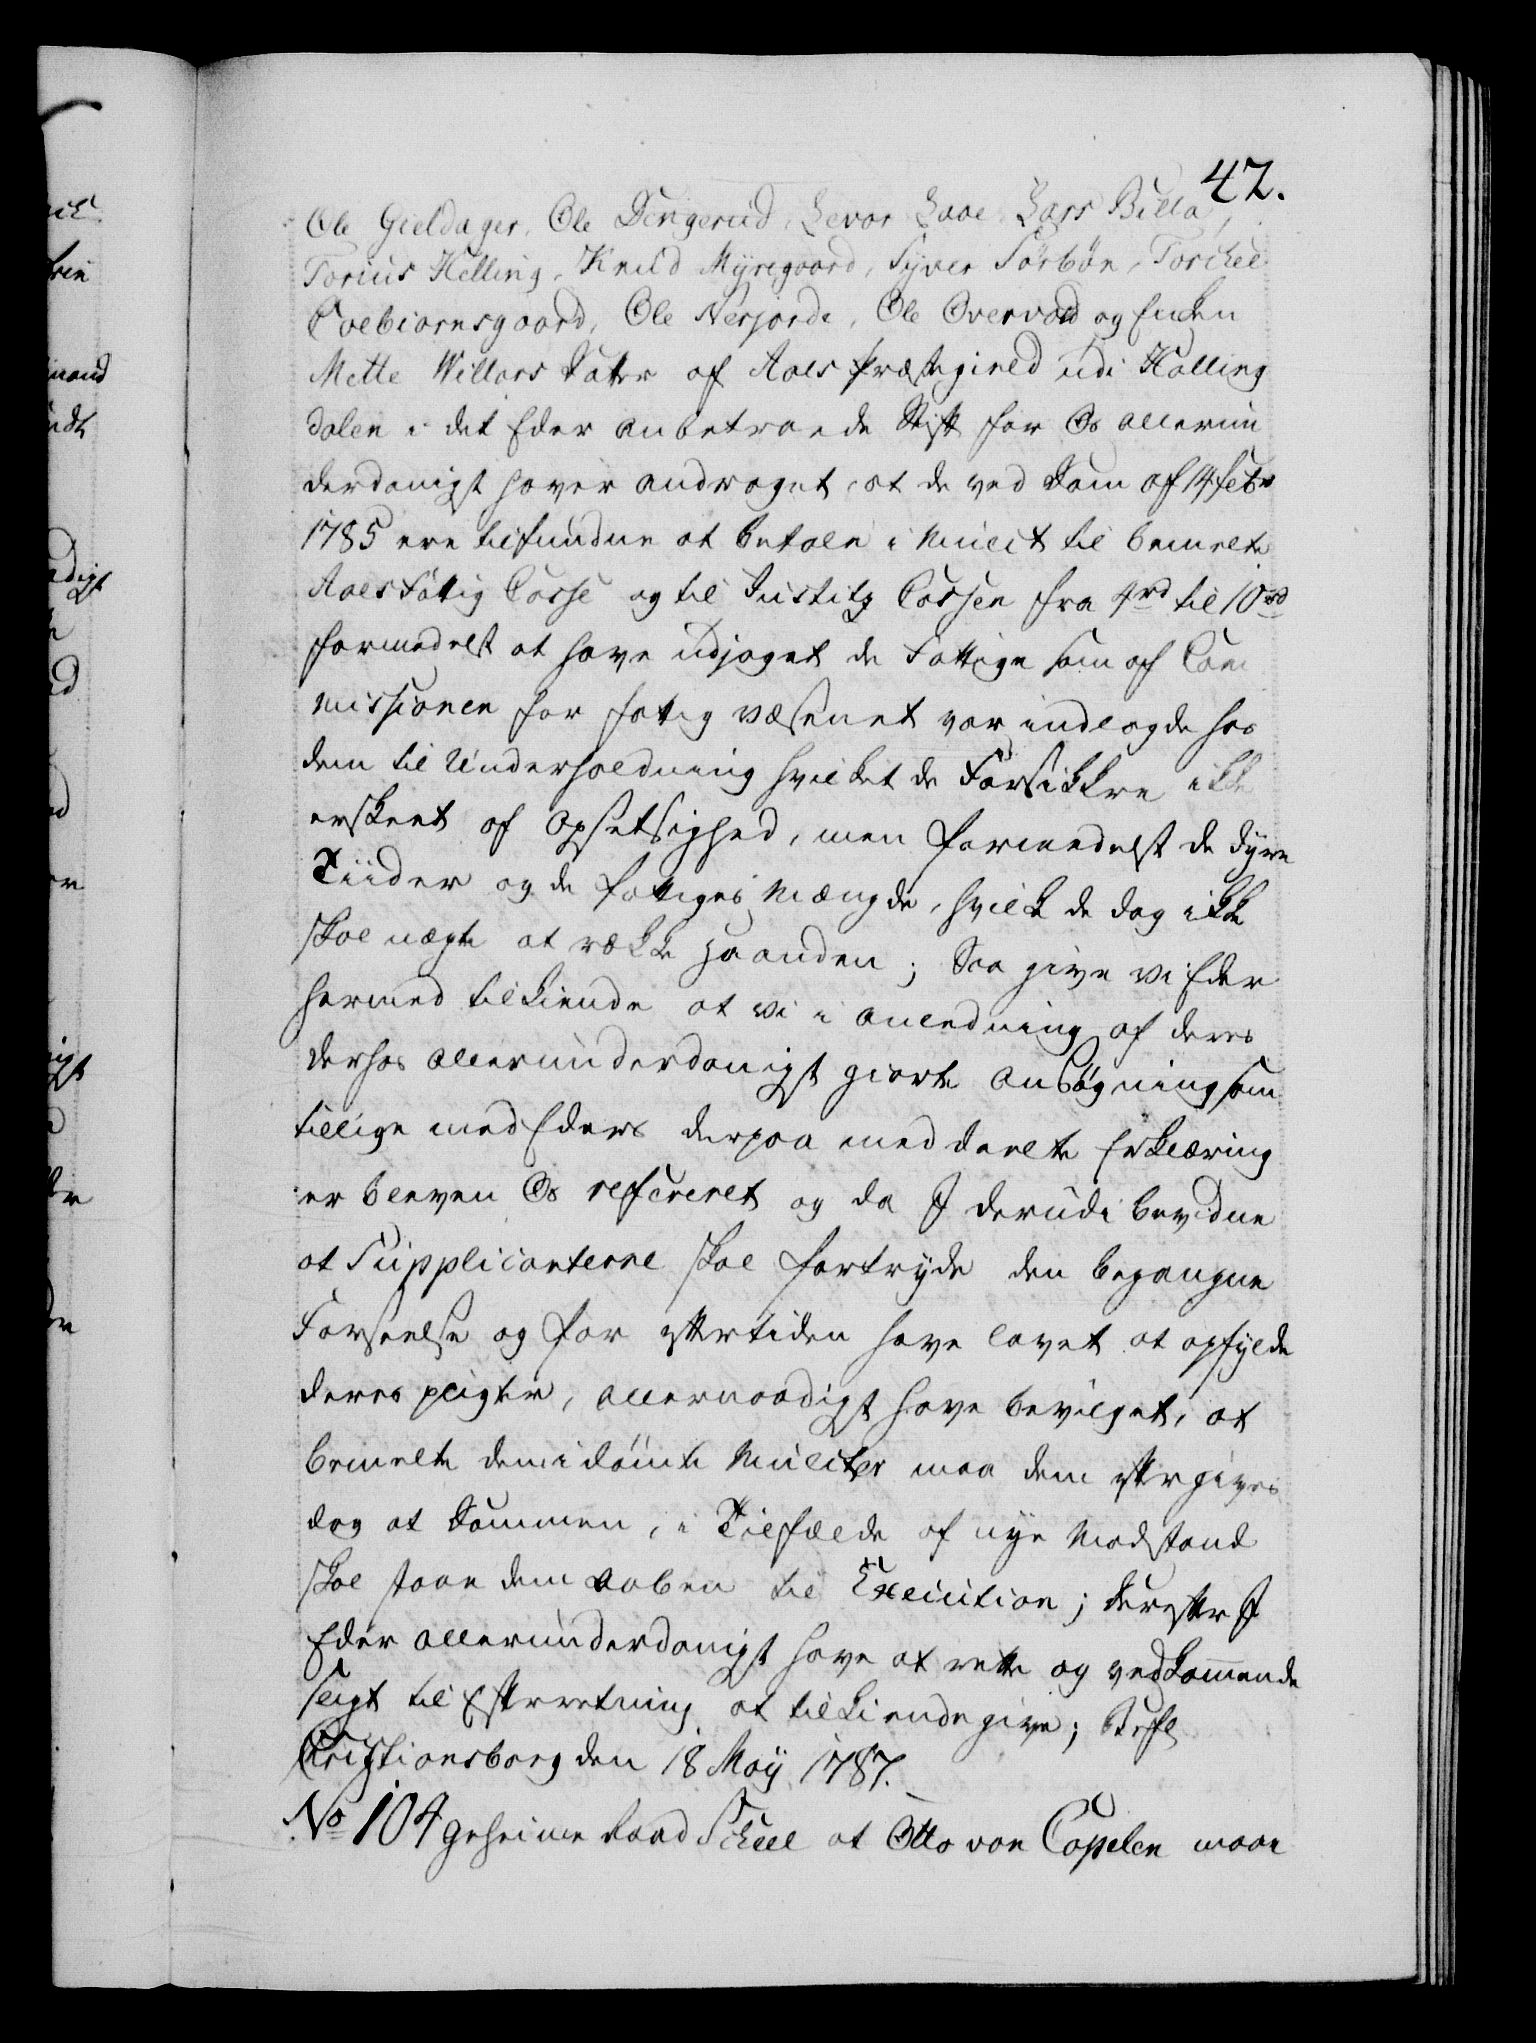 42.
Ole Gieldager, Ole Dengerud, Levor Laae Lars Billa,
Torius Helling, Knud Myregaard, Syver Sørbøn, Torchel
Toebiørnsgaard, Ole Nerjorde, Ole Overvold og Enken
Mette Willars Datter af Aals Præstegield udi Halling
dalen i det Eder anbetroede Stift for Os allerun
derdanigst haver andraget, at de ved Dom af 14 Febr
1785 ere tilfundne at betale i Mulct til bemelte
Aals Fattig Casse og til Justitz Cassen fra 4 rd til 10 rd
formedelst at have udjaget de Fattige som af Com
missionen for fattig væsenet var indlagde hos
dem til Underholdning hvilket de Forsikkre ikke
er skeet af Opsetsighed, men formedelst de dyre
Tiider og de fattiges Mængde, hvilke de dog ikke
skal nægte at række Haanden; Saa give vi Eder
hermed tilkiende at vi i Anledning af deres
derhos allerunderdanigst giorte Ansøgning som
tillige med Eders derpaa meddeelte Erklæring
er bleven Os refereret og da I derudi bevidne
at Supplicanterne skal fortryde den begangne
Forseelse og for Eftertiden have lovet at opfylde
deres pligter, allernaadigst have bevilget, at
bemelte dem idømte Mulcter maa dem eftergives
dog at Dommen, i Tilfælde af nye Modstand
skal staae dem aaben til Execution; Derefter I
Eder allerunderdanigst have at rette og vedkommende
sligt til Efterretning at tilkiendegive; Befl
Christiansborg den 18 Maij 1787.
No 104 geheime Raad Scheel at Otto von Copelen maae